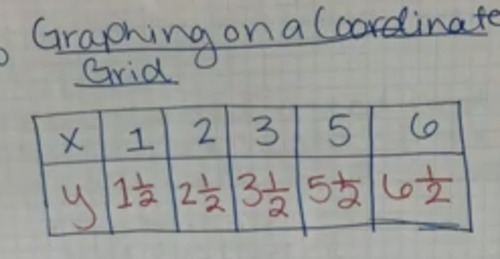 Graphing on a Coordinate
Grid
x 1 2 3 5 6
y 1½ 2½ 3½ 5½ 6½